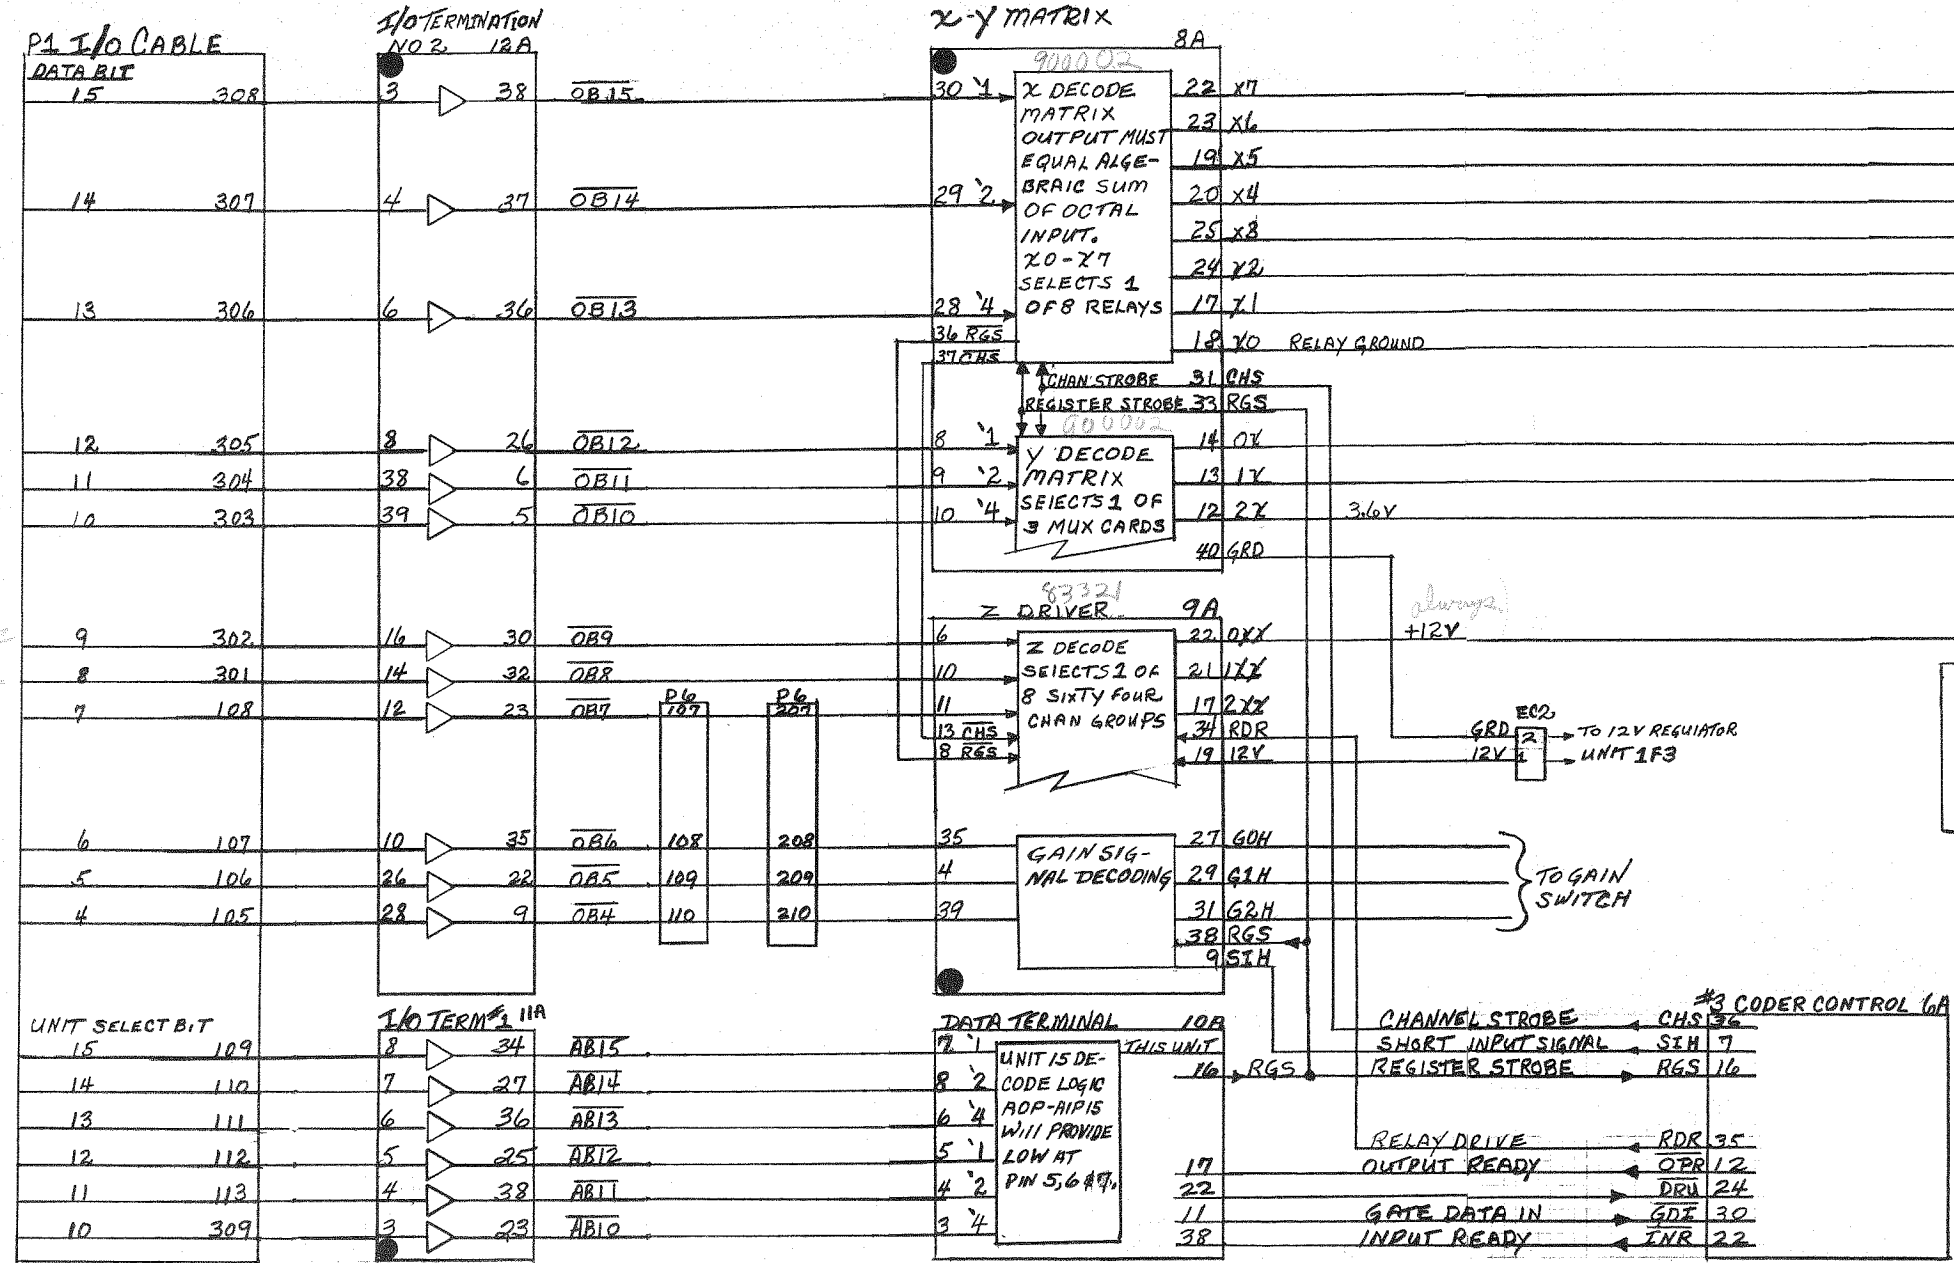 P1 I/O CABLE
DATA BIT
15 308
14 307
13 306
12 305
11 304
10 303
9 302
8 301
7 108
6 107
5 106
4 105
UNIT SELECT BIT
15 109
14 110
13 111
12 112
11 113
10 309
I/O TERMINATION
NO 2 12A
3 38 OB15
4 37 OB14
6 36 OB13
8 26 OB12
38 6 OB11
39 5 OB10
16 30 OB9
14 32 OB8
12 23 OB7
10 35 OB6
26 22 OB5
28 9 OB4
P6
107
108
109
110
P6
207
208
209
210
I/O TERM #1 11A
8 34 AB15
7 27 AB14
6 36 AB13
5 25 AB12
4 38 AB11
3 23 AB10
X-Y MATRIX
8A
900002
30 '1
29 '2
28 '4
36 RGS
37 CHS
X DECODE
MATRIX
OUTPUT MUST
EQUAL ALGE-
BRAIC SUM
OF OCTAL
INPUT.
X0-X7
SELECTS 1
OF 8 RELAYS
22 X7
23 X6
19 X5
20 X4
25 X3
24 X2
17 X1
18 X0 RELAY GROUND
CHAN STROBE 31 CHS
REGISTER STROBE 33 RGS
900002
8 '1
9 '2
10 '4
Y DECODE
MATRIX
SELECTS 1 OF
3 MUX CARDS
14 0X
13 1X
12 2X 3.6V
40 GRD
83321
Z DRIVER 9A
6
10
11
13 CHS
8 RGS
Z DECODE
SELECTS 1 OF
8 SIXTY FOUR
CHAN GROUPS
22 0XX
21 1XX
17 2XX
34 RDR
19 12V
always
+12V
EC2
GRD 2 TO 12V REGULATOR
12V 1 UNIT 1F3
35
4
39
GAIN SIG-
NAL DECODING
27 G0H
29 G1H
31 G2H
38 RGS
9 SIH
TO GAIN
SWITCH
DATA TERMINAL 10A
THIS UNIT
7 '1
8 '2
6 '4
5 '1
4 '2
3 '4
UNIT 15 DE-
CODE LOGIC
AOP-AIP15
WILL PROVIDE
LOW AT
PIN 5,6 & 7.
16 RGS
17
22
11
38
#3 CODER CONTROL 6A
CHANNEL STROBE CHS 36
SHORT INPUT SIGNAL SIH 7
REGISTER STROBE RGS 16
RELAY DRIVE RDR 35
OUTPUT READY OPR 12
DRU 24
GATE DATA IN GDI 30
INPUT READY INR 22